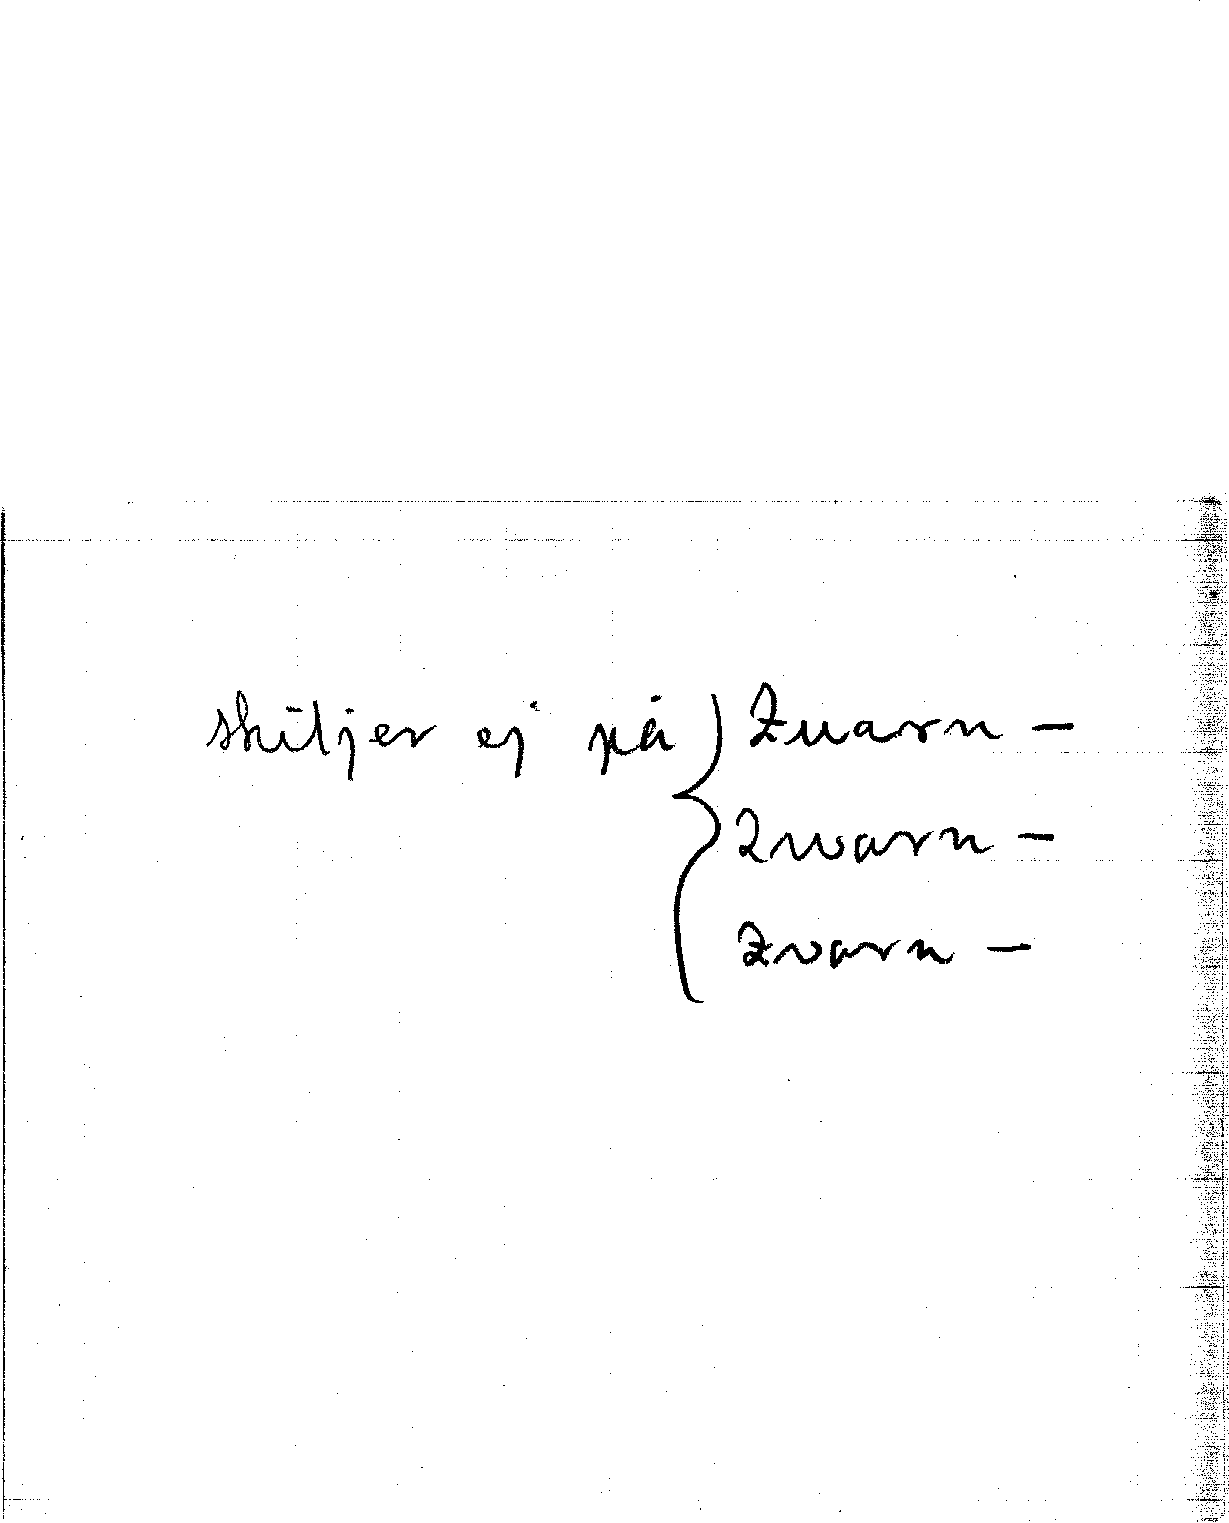 skiljer ej på } Zuarn -
Zwarn -
Zvarn -